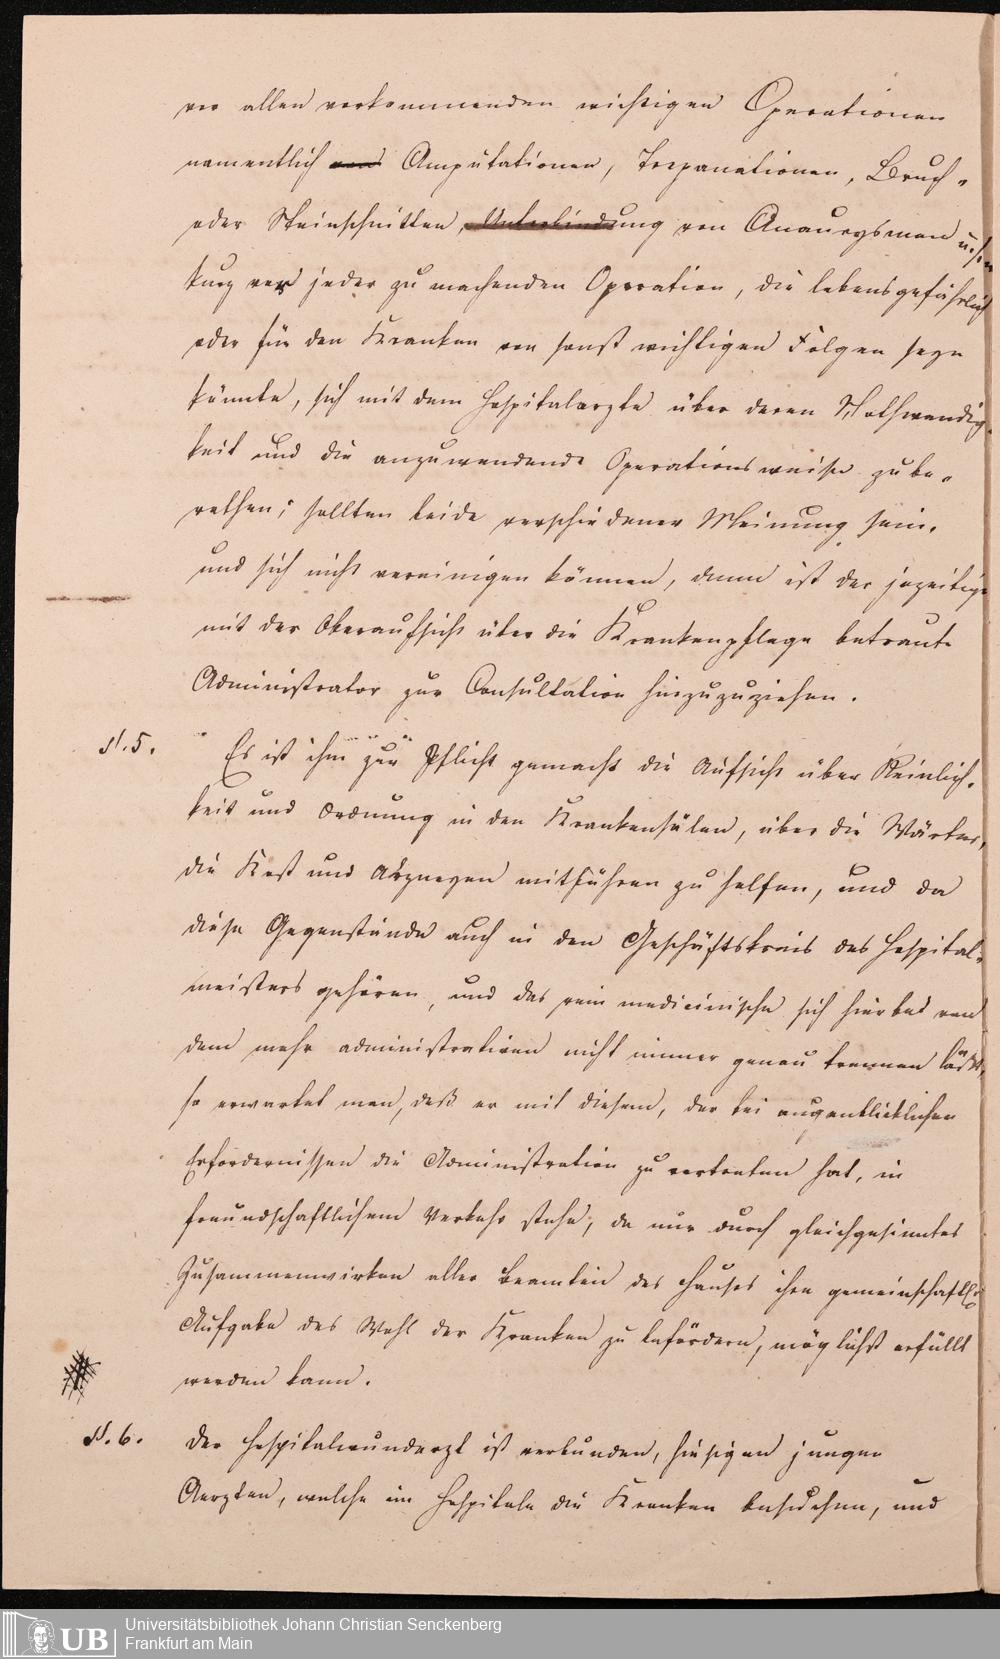 vor allen vorkommenden wichtigen Operationen
namentlich Amputationen, Trepanationen, Bruch-
oder Steinschnitten, Unterbindung von Aneurysmen u.s.w
kurz vor jeder zu machenden Operation, die lebensgefährlich
oder für den Kranken von sonst wichtigen Folgen seyn
könnte, sich mit dem Hospitalarzte über deren Nothwendig-
keit und die anzuwendende Operationsweise zu be-
rathen; sollten beide verschiedener Meinung sein,
und sich nicht vereinigen können, dann ist der jezeitige
mit der Oberaufsicht über die Krankenpflege betraute
Administrator zur Consultation hinzuzuziehen.
§. 5. Es ist ihm zur Pflicht gemacht die Aufsicht über Reinlich-
keit und Ordnung in den Krankensälen, über die Wärter,
die Kost und Arzneyen mitführen zu helfen, und da
diese Gegenstände auch in den Geschäftskreis des Hospital-
meisters gehören, und das rein medicinische sich hierbei von
dem mehr administrativen nicht immer genau trennen läßt,
so erwartet man, daß er mit diesem, der bei augenblicklichen
Erfordernissen die Administration zu vertreten hat, in
freundschaftlichem Verkehr stehe, da nur durch gleichgesinntes
Zusammenwirken aller Beamten des Hauses ihre gemeinschaftl.
Aufgabe das Wohl der Kranken zu befördern, möglichst erfüllt
werden kann.
§. 6. Der Hospitalwundarzt ist verbunden, hiesigen jungen
Aerzten, welche im Hospitale die Kranken besuchen, und
Universitätsbibliothek Johann Christian Senckenberg
Frankfurt am Main
UB